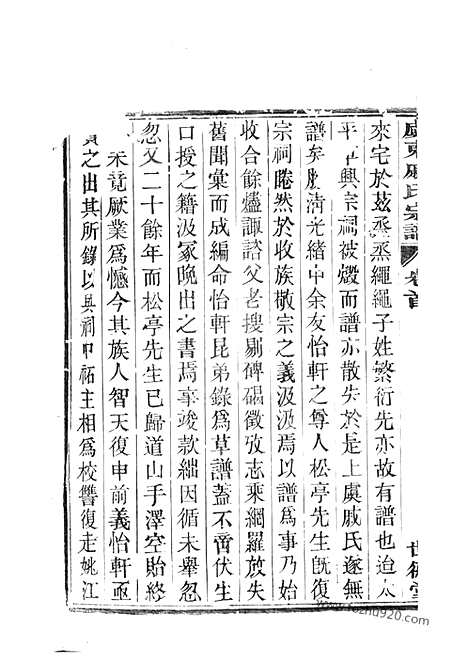 虞東戚氏宗譜 卷首 世德堂
來宅於茲烝烝繩繩子姓繁衍先亦故有譜也迨太
平軍興宗祠被燬而譜亦散失於是上虞戚氏遂無
譜矣勝清光緒中余友怡軒之尊人松亭先生旣復
宗祠睠然於收族敬宗之義汲汲焉以譜爲事乃始
收合餘燼諏諮父老搜剔碑碣徵攷志乘網羅放失
舊聞彙而成編命怡軒昆弟錄爲草譜蓋不啻伏生
口授之籍汲冢晚出之書焉事竣款絀因循未舉忽
忽又二十餘年而松亭先生已歸道山手澤空貽終
未竟厥業爲憾今其族人智天復申前義怡軒亟
之出其所錄以與祠中祏主相爲校讐復走姚江
www.fozhu920.com